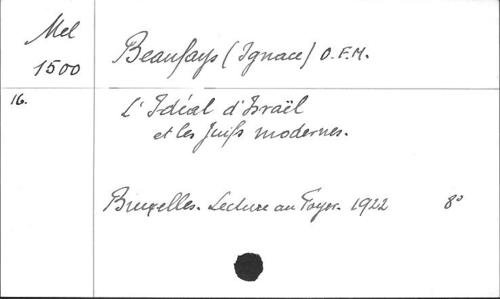 Mel
1500
Beaufays (Ignace) O.F.M.
16.
L'Idéal d'Israël
et les Juifs modernes.
Bruxelles. Lecture au Foyer. 1922 8°